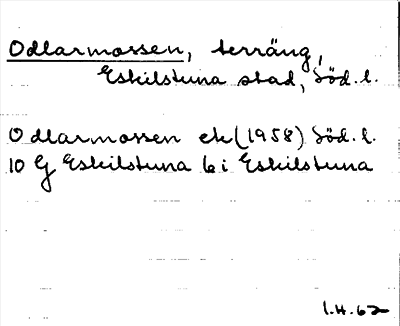 Odlarmossen, terräng,
Eskilstuna stad, Söd. l.
Odlarmossen ek (1958) Söd. l.
10 G Eskilstuna 6 i Eskilstuna
1.H.62